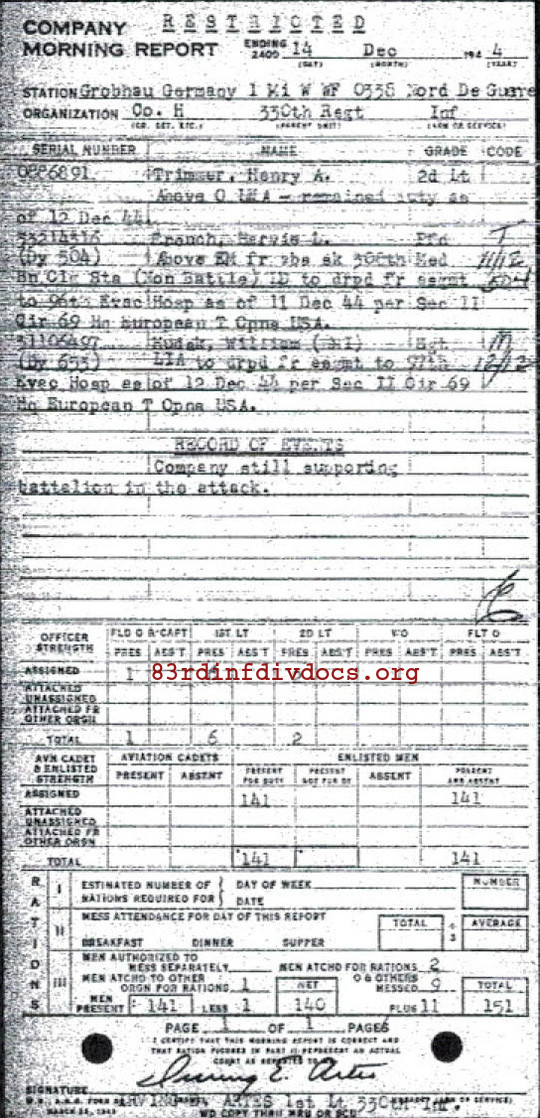 RESTRICTED
COMPANY
MORNING REPORT
ENDING 2400 14 Dec 194 4
(DAY) (MONTH) (YEAR)
STATION Grobhau Germany 1 Mi W WF 0338 Nord De Guerre
ORGANIZATION Co. H 330th Regt Inf
(CO. DET. ETC.) (PARENT UNIT) (ARM OR SERVICE)
SERIAL NUMBER NAME GRADE CODE
Henry A. 2d Lt
Above O LWA - remained duty as
of 12 Dec 44
French, L. Pfc
(Dy 504) Above EM fr abs sk 308th Med
Bn Clr Sta (Non Battle) LD to drpd fr asgmt
to 96th Evac Hosp as of 11 Dec 44 per Sec II
Cir 69 Hq European T Opns USA.
31106497 William (NMI) Sgt
(Dy 653) LIA to drpd fr asgmt to 97th
Evac Hosp as of 12 Dec 44 per Sec II Cir 69
Hq European T Opns USA.
RECORD OF EVENTS
Company still supporting
battalion in the attack.
OFFICER STRENGTH FLD O & CAPT 1ST LT 2D LT W O FLT O
PRES ABS'T PRES ABS'T PRES ABS'T PRES ABS'T PRES ABS'T
ASSIGNED 1
83rdinfdivdocs.org
ATTACHED UNASSIGNED
ATTACHED FR OTHER ORGN
TOTAL 1 6 2
AVN CADET & ENLISTED STRENGTH AVIATION CADETS ENLISTED MEN
PRESENT ABSENT PRESENT FOR DUTY PRESENT NOT FOR DY ABSENT PRESENT AND ABSENT
ASSIGNED 141 141
ATTACHED UNASSIGNED
ATTACHED FR OTHER ORGN
TOTAL 141 141
RATIONS
I ESTIMATED NUMBER OF RATIONS REQUIRED FOR DAY OF WEEK DATE NUMBER
II MESS ATTENDANCE FOR DAY OF THIS REPORT
BREAKFAST DINNER SUPPER TOTAL ÷ 3 AVERAGE
III MEN AUTHORIZED TO MESS SEPARATELY MEN ATCHD FOR RATIONS 2
MEN ATCHD TO OTHER ORGN FOR RATIONS 1 NET O & OTHERS MESSED 9 TOTAL
MEN PRESENT 141 LESS 1 140 PLUS 11 151
PAGE 1 OF 1 PAGES
I CERTIFY THAT THIS MORNING REPORT IS CORRECT AND
THAT RATION FIGURES IN PART III REPRESENT AN ACTUAL
COUNT AS REPORTED TO
Irving E. Artes
SIGNATURE
IRVING E. ARTES 1st Lt 330th Inf
W.D., A.G.O. FORM
MARCH 25, 1943
WD COPY THRU MRU OR SCU